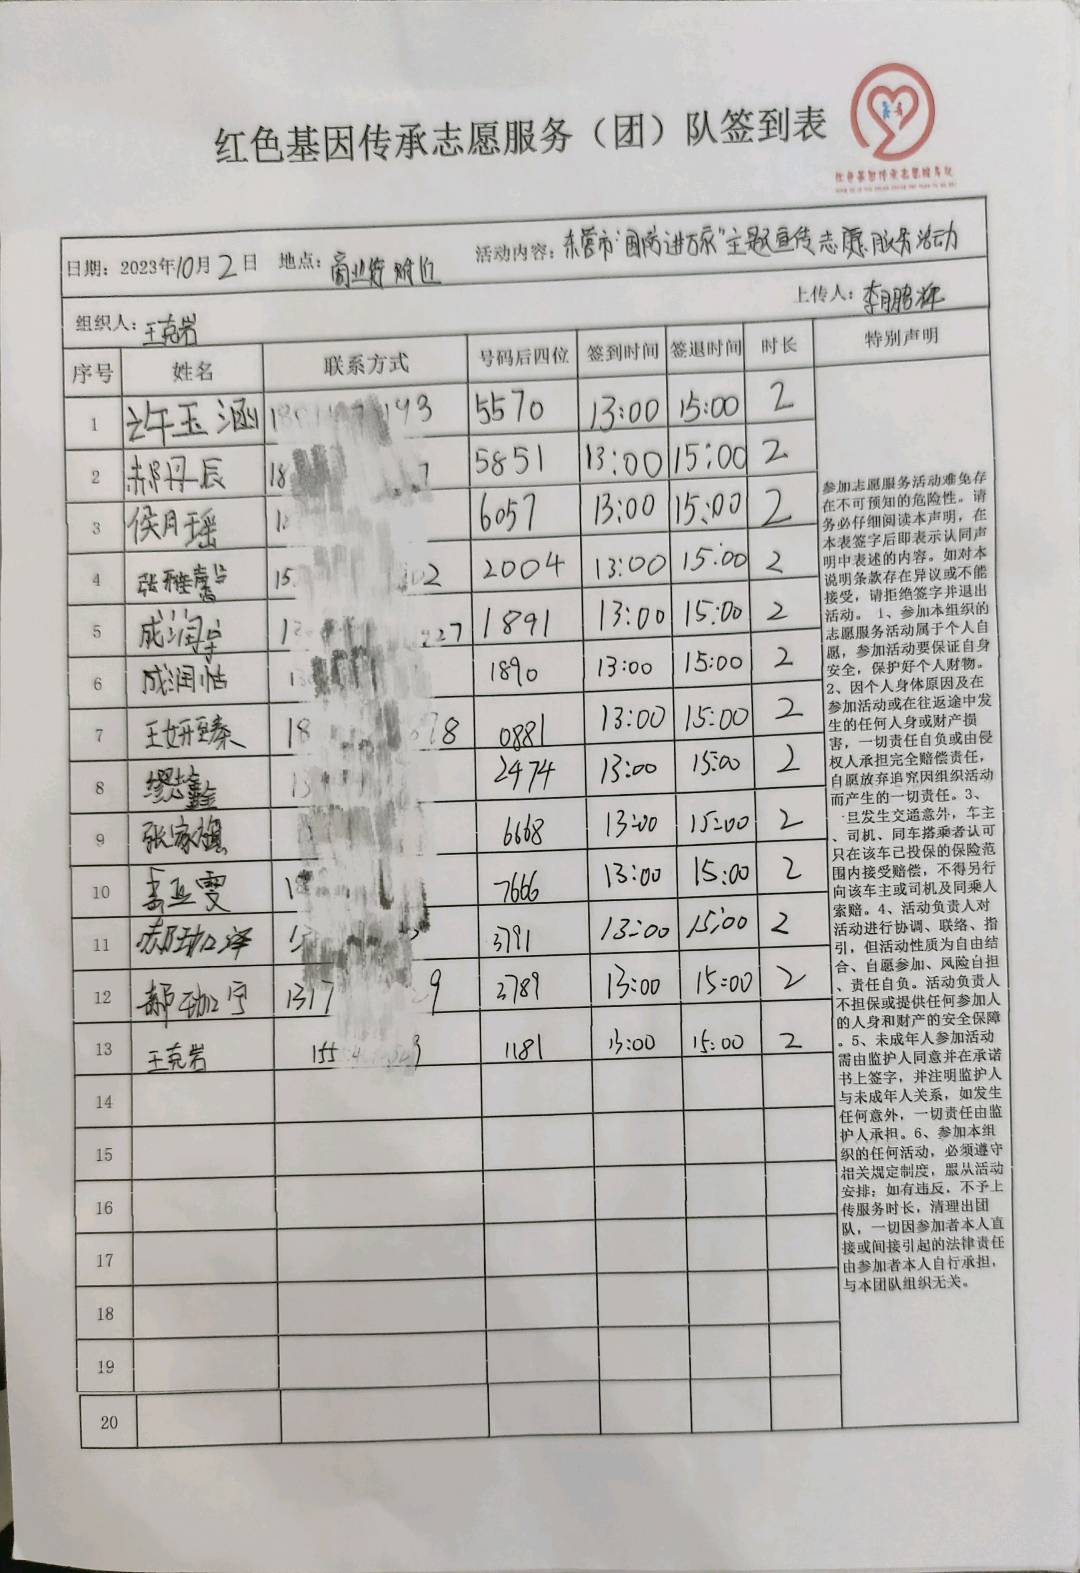 红色基因传承志愿服务（团）队签到表
日期：2023年10月2日 地点：商业街附近 活动内容：东营市“国防进万家”主题宣传志愿服务活动
组织人：王克岩 上传人：李鹏辉
序号 姓名 联系方式 号码后四位 签到时间 签退时间 时长 特别声明
1 许玉涵 5570 13:00 15:00 2
2 郝丹辰 18 5851 13:00 15:00 2
3 侯月瑶 6057 13:00 15:00 2
4 张雅馨 15 02 2004 13:00 15:00 2
5 成润宇 227 1891 13:00 15:00 2
6 成润恬 1890 13:00 15:00 2
7 王妍臻 18 8 0881 13:00 15:00 2
8 2474 13:00 15:00 2
9 张家旗 6668 13:00 15:00 2
10 雯 7666 13:00 15:00 2
11 郝珈泽 3791 13:00 15:00 2
12 郝珈宇 1317 9 3789 13:00 15:00 2
13 王克岩 155 1181 13:00 15:00 2
14
15
16
17
18
19
20
参加志愿服务活动难免存
在不可预知的危险性。请
务必仔细阅读本声明，在
本表签字后即表示认同声
明中表述的内容。如对本
说明条款存在异议或不能
接受，请拒绝签字并退出
活动。 1、参加本组织的
志愿服务活动属于个人自
愿，参加活动要保证自身
安全，保护好个人财物。
2、因个人身体原因及在
参加活动或在往返途中发
生的任何人身或财产损
害，一切责任自负或由侵
权人承担完全赔偿责任，
自愿放弃追究因组织活动
而产生的一切责任。3、
一旦发生交通意外，车主
、司机、同车搭乘者认可
只在该车已投保的保险范
围内接受赔偿，不得另行
向该车主或司机及同乘人
索赔。4、活动负责人对
活动进行协调、联络、指
引，但活动性质为自由结
合、自愿参加、风险自担
、责任自负。活动负责人
不担保或提供任何参加人
的人身和财产的安全保障
。5、未成年人参加活动
需由监护人同意并在承诺
书上签字，并注明监护人
与未成年人关系，如发生
任何意外，一切责任由监
护人承担。6、参加本组
织的任何活动，必须遵守
相关规定制度，服从活动
安排；如有违反，不予上
传服务时长，清理出团
队，一切因参加者本人直
接或间接引起的法律责任
由参加者本人自行承担，
与本团队组织无关。